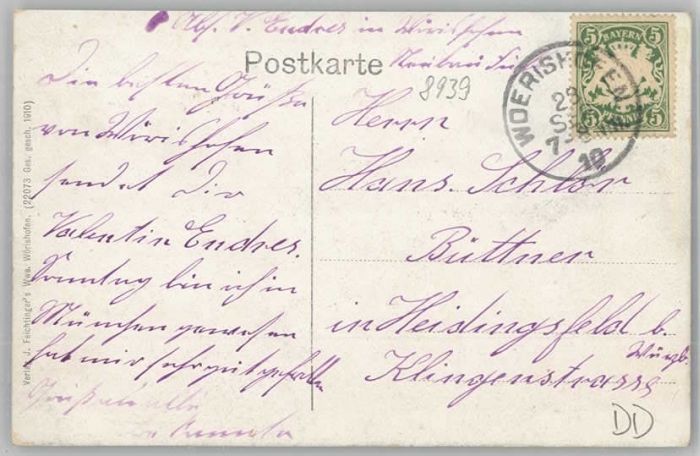 Abs. V. Endres in Wörishofen
Postkarte
8939
BAYERN
5 5
5 PFENNIG 5
WOERISHOFEN
29
SEP
10
Die besten Grüße
von Wörishofen
sendet Dir
Valentin Endres.
Sonntag bin ich in
München gewesen
hat mir sehr gut gefallen
Herrn
Hans Schlör
Büttner
in Heidingsfeld b.
Würzb.
Klingenstrasse
DD
Verlag J. Feichtinger's Wwe. Wörishofen. (22073 Ges. gesch. 1910)